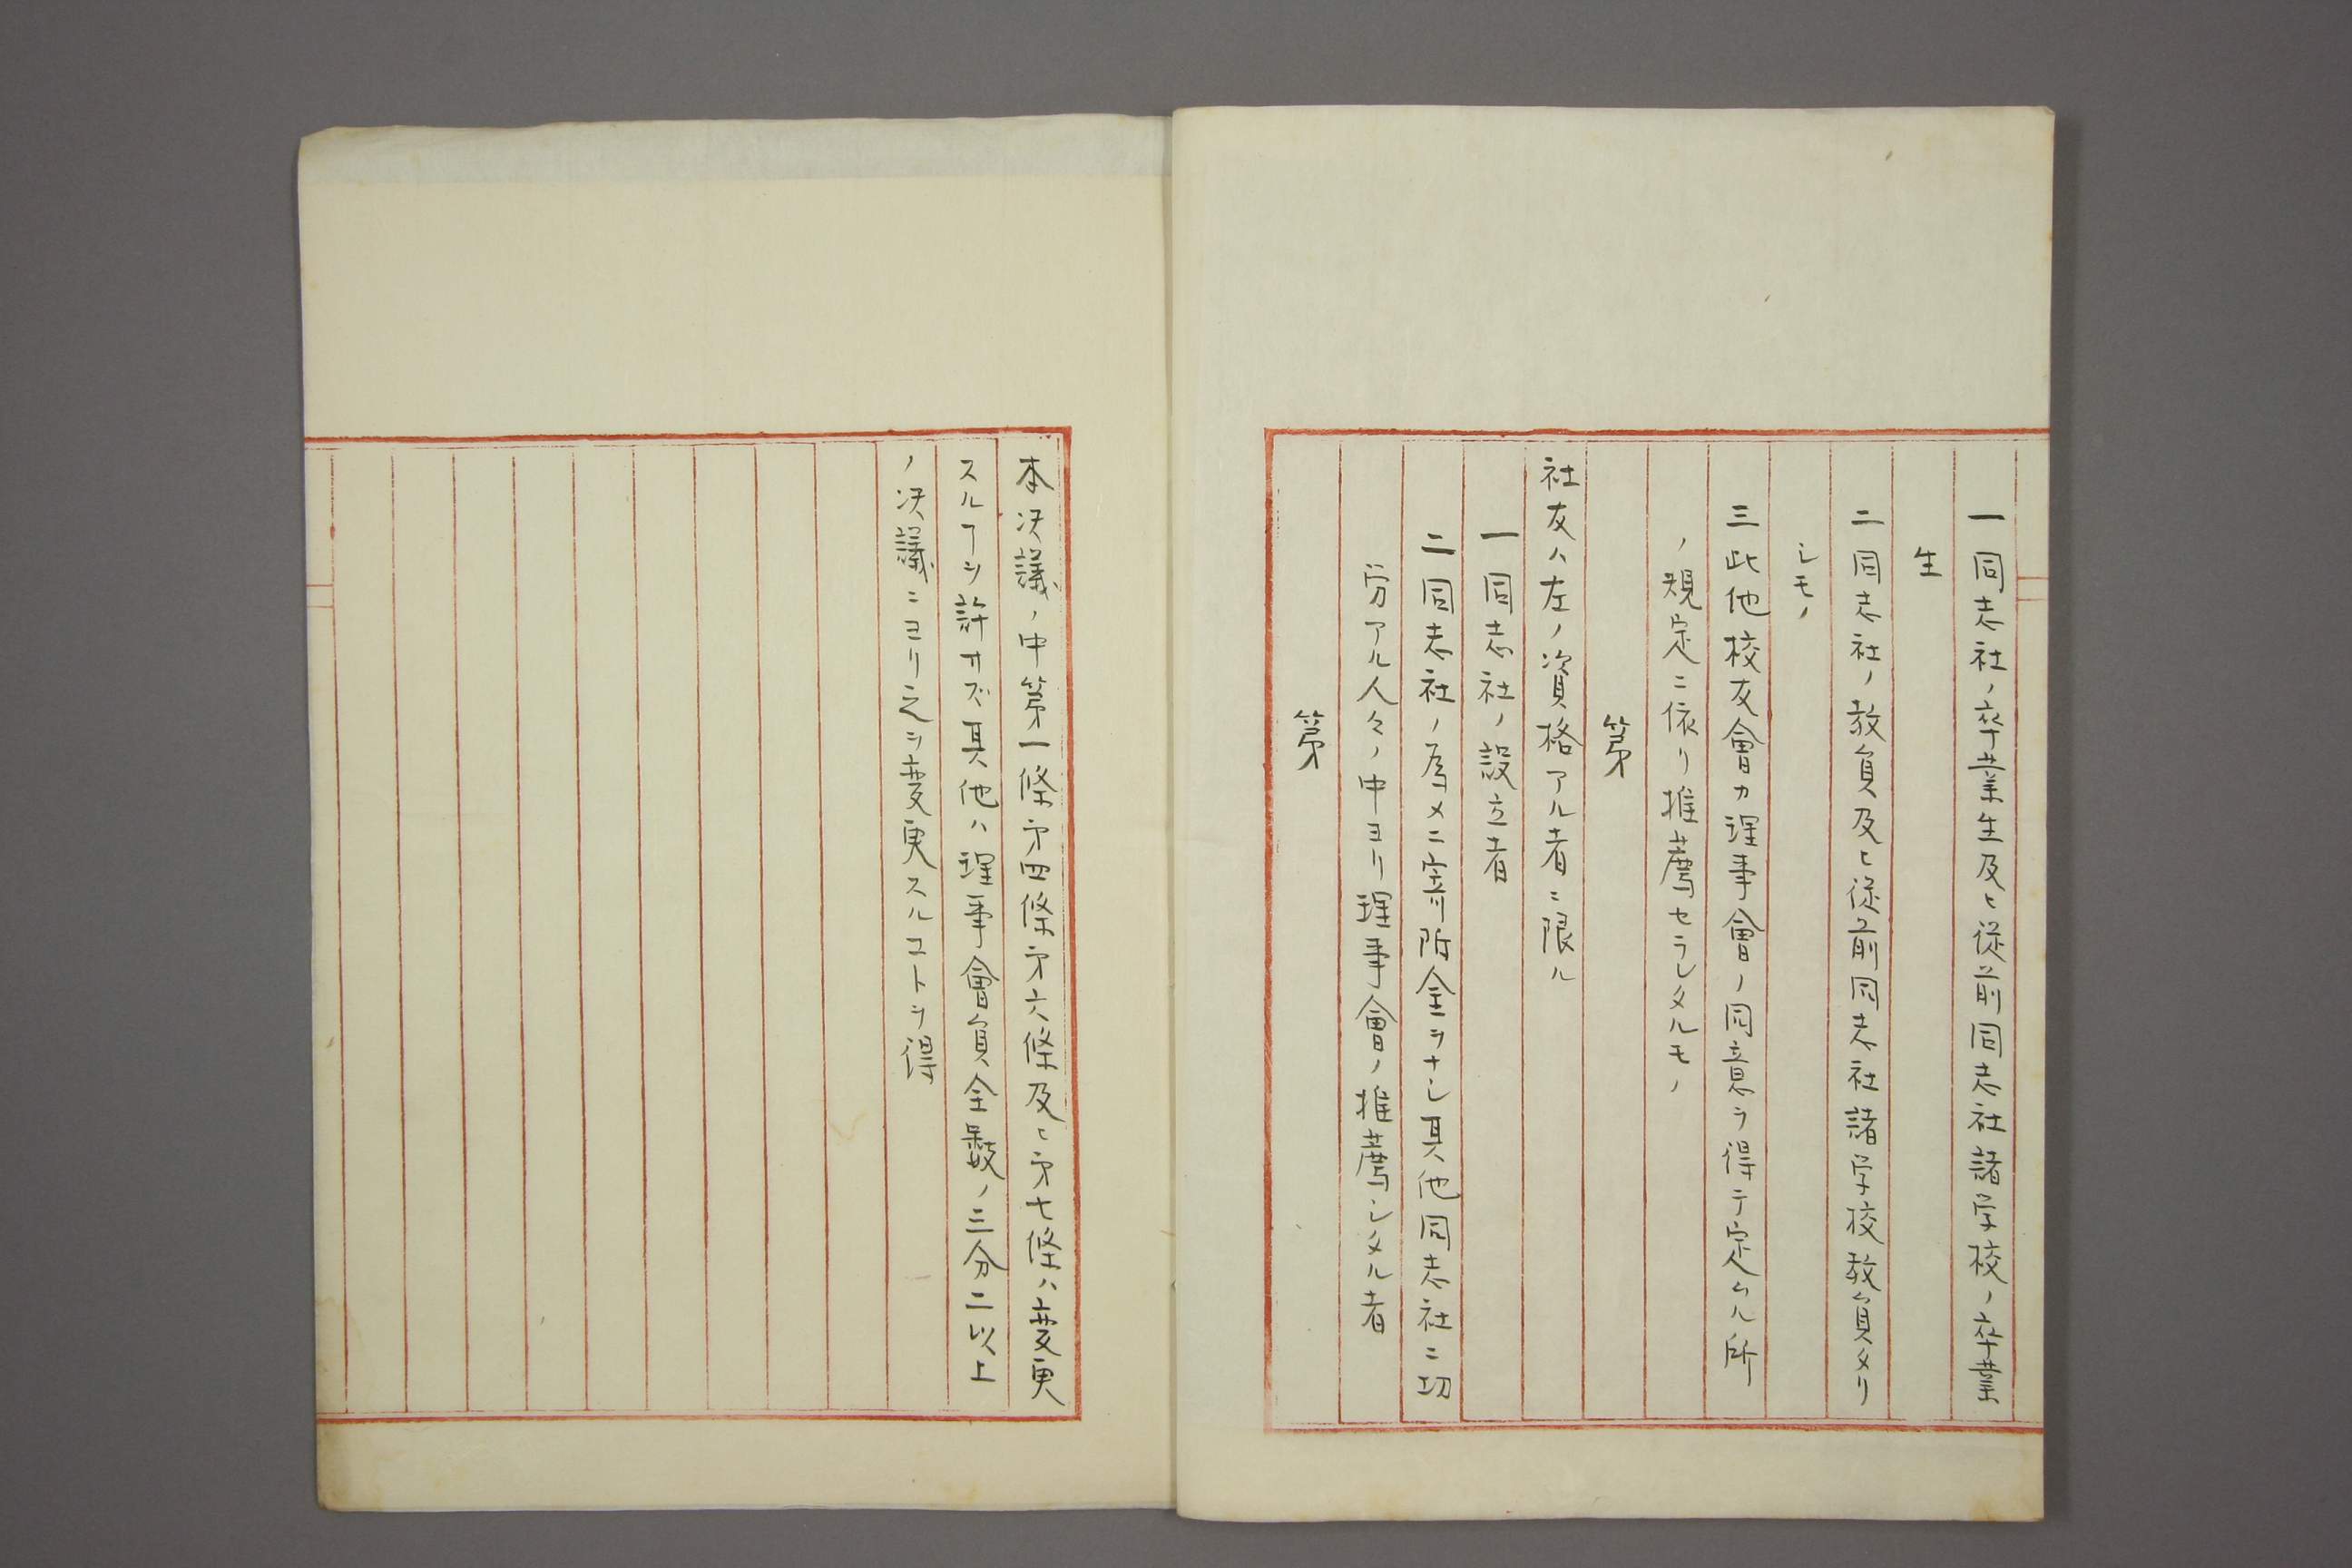 一同志社ノ卒業生及ヒ従前同志社諸学校ノ卒業
生
二同志社ノ教員及ヒ従前同志社諸学校教員タリ
シモノ
三此他校友會カ理事會ノ同意ヲ得テ定ムル所
ノ規定ニ依リ推薦セラレタルモノ
第
社友ハ左ノ資格アル者ニ限ル
一同志社ノ設立者
二同志社ノ為メニ寄附金ヲナシ其他同志社ニ功
労アル人々ノ中ヨリ理事會ノ推薦シタル者
第
本决議ノ中第一條㐧四條㐧六條及ヒ㐧七條ハ変更
スルヿヲ許サズ其他ハ理事會員全数ノ三分二以上
ノ决議ニヨリ之ヲ変更スルコトヲ得